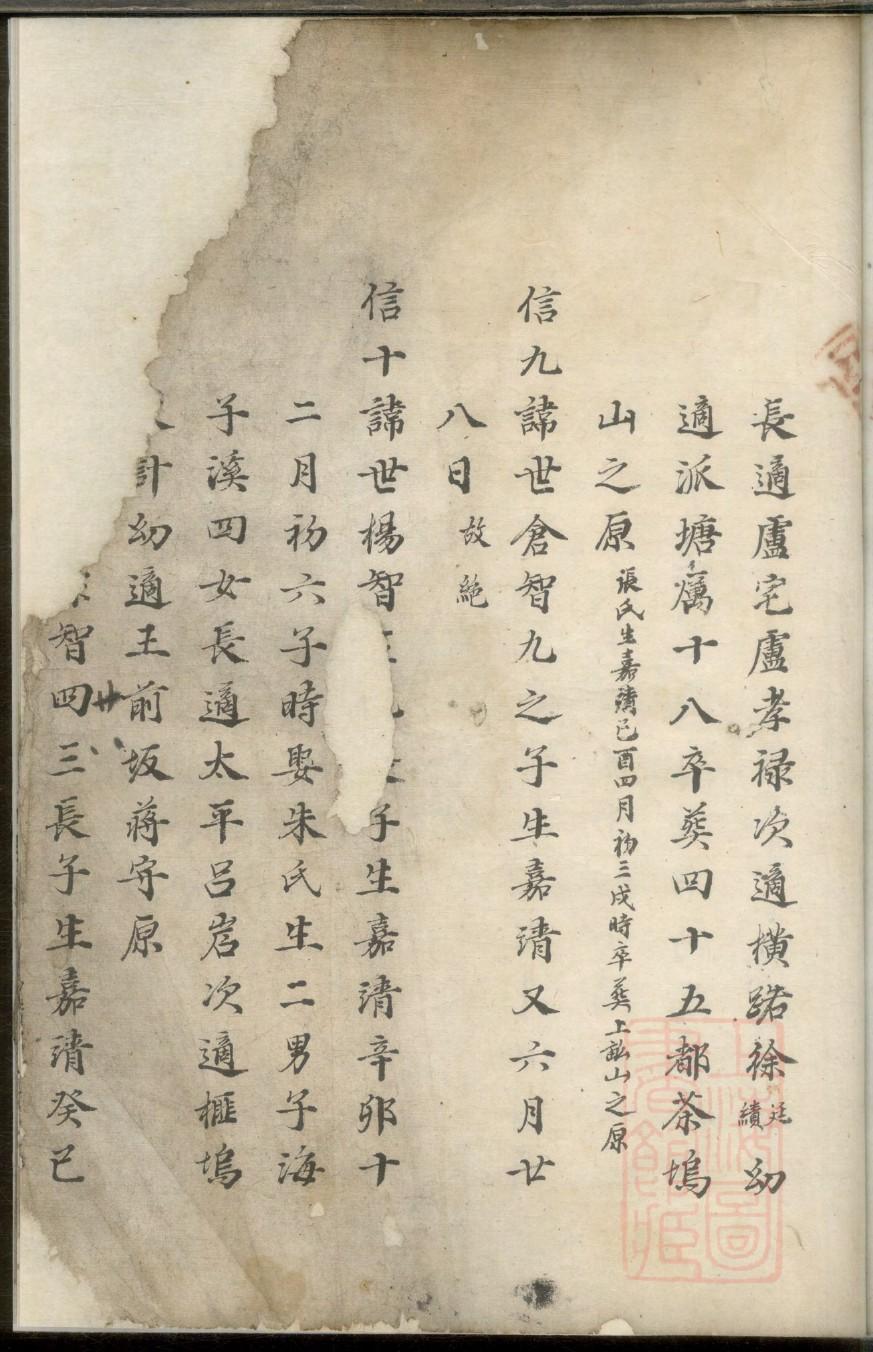 長適盧宅盧孝禄次適橫路徐廷績幼
適派塘十八卒葬四十五都茶塢
山之原張氏生嘉靖己酉四月初三戌時卒葬上山之原
信九諱世倉智九之子生嘉靖又六月廿
八日故絶
信十諱世楊智子生嘉靖辛卯十
二月初六子時娶朱氏生二男子海
子溪四女長適太平呂岩次適榧塢
計幼適王前坂蔣守原
智四廿三長子生嘉靖癸巳
上海圖書館藏